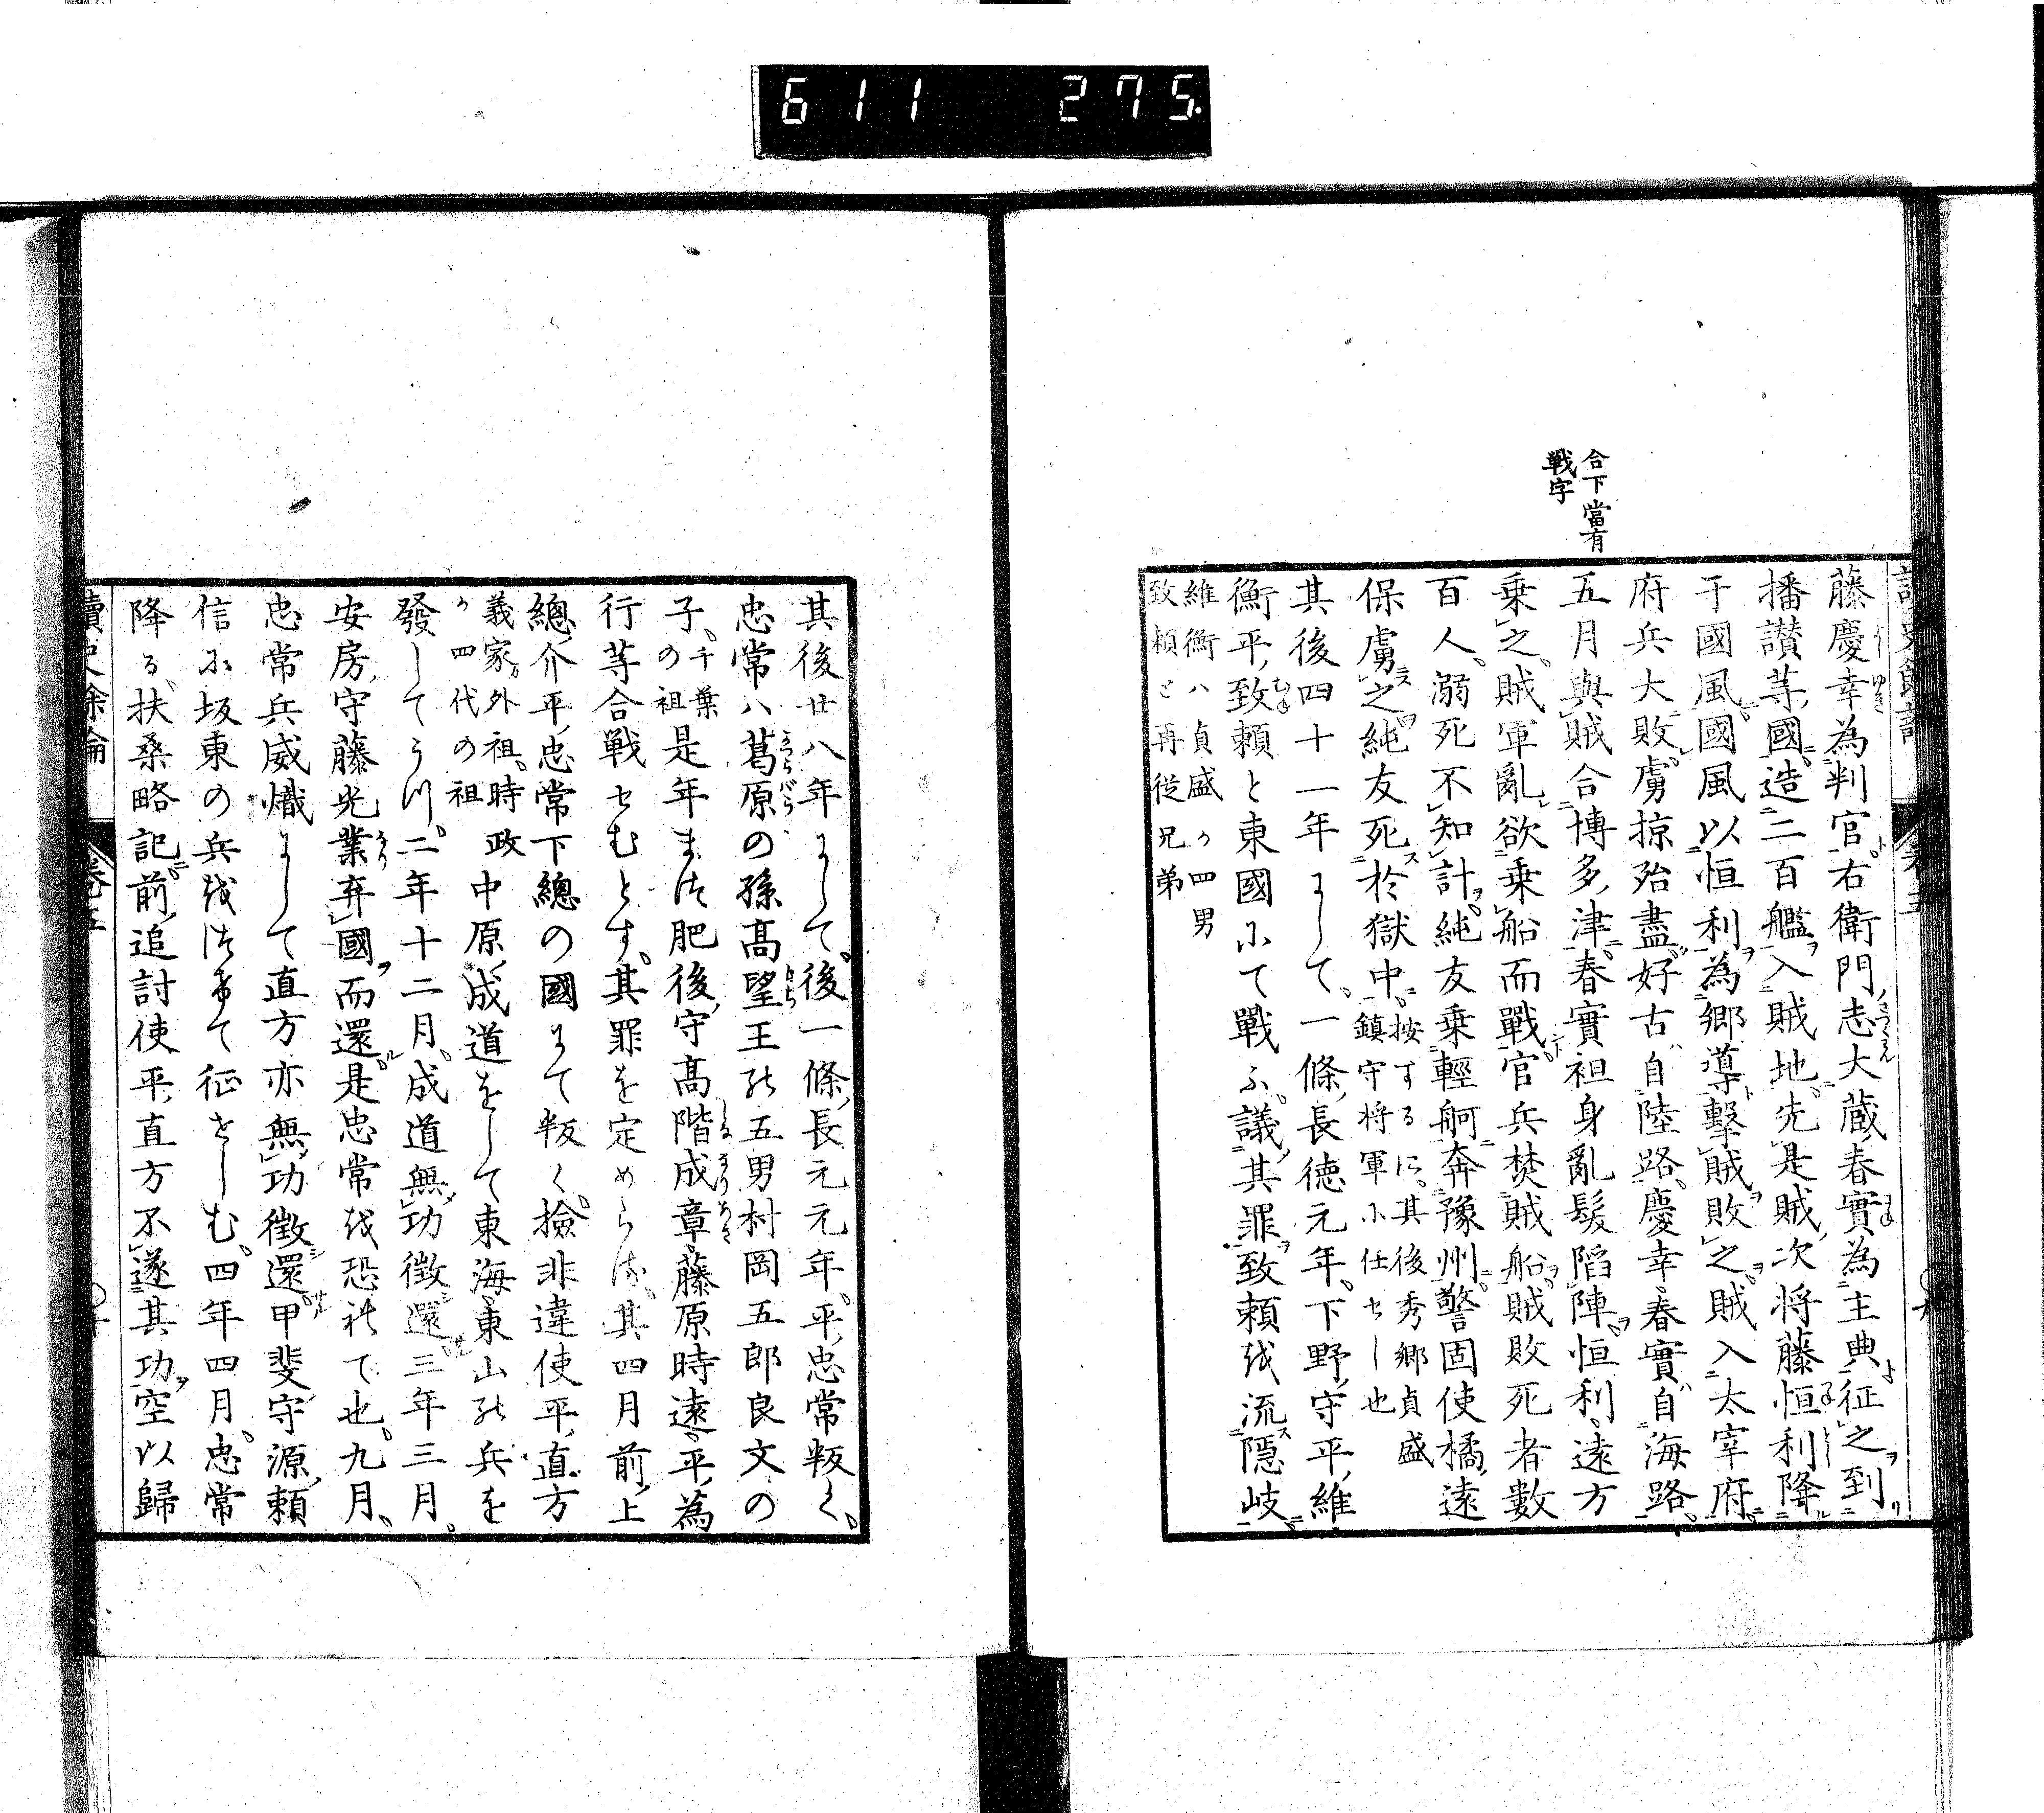 611 275.
合下當有
戰字
藤慶幸為判官右衛門志大蔵春實為主典征之到
播讃等國造二百艦入賊地先是賊次将藤恒利降
于國風國風以恒利為郷導撃賊敗之賊入太宰府
府兵大敗虜掠殆盡好古自陸路慶幸春實自海路
五月與賊合博多津春實袒身亂髮陷陣恒利遠方
乗之賊軍亂欲乗船而戰官兵焚賊船賊敗死者數
百人溺死不知計純友乗輕舸奔豫州警固使橘遠
保虜之純友死於獄中按するに其後秀郷貞盛
鎮守将軍小任セし也
其後四十一年にして一條長徳元年下野守平維
衡平致頼と東國にて戰ふ議其罪致頼を流隠岐
維衡ハ貞盛か四男
致頼と再従兄弟
其後廿八年にして後一條長元元年平忠常叛く
忠常ハ葛原の孫髙望王の五男村岡五郎良文の
子千葉
の祖是年まつ肥後守髙階成章藤原時遠平為
行等合戦せむとす其罪を定めらる其四月前上
總介平忠常下總の國にて叛く撿非違使平直方
義家外祖時政
か四代の祖中原成道をして東海東山の兵を
發してうつ二年十二月成道無功徴還三年三月
安房守藤光業弃國而還是忠常を恐れて也九月
忠常兵威熾にして直方亦無功徴還甲斐守源頼
信に坂東の兵をつけて征せしむ四年四月忠常
降る扶桑略記前追討使平直方不遂其功空以歸